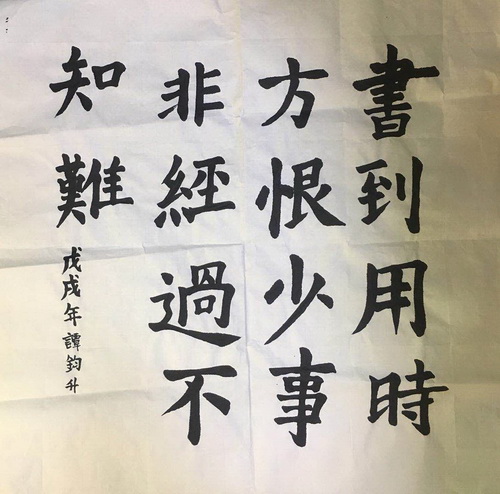 書到用時
方恨少事
非經過不
知難
戊戌年譚鈞升